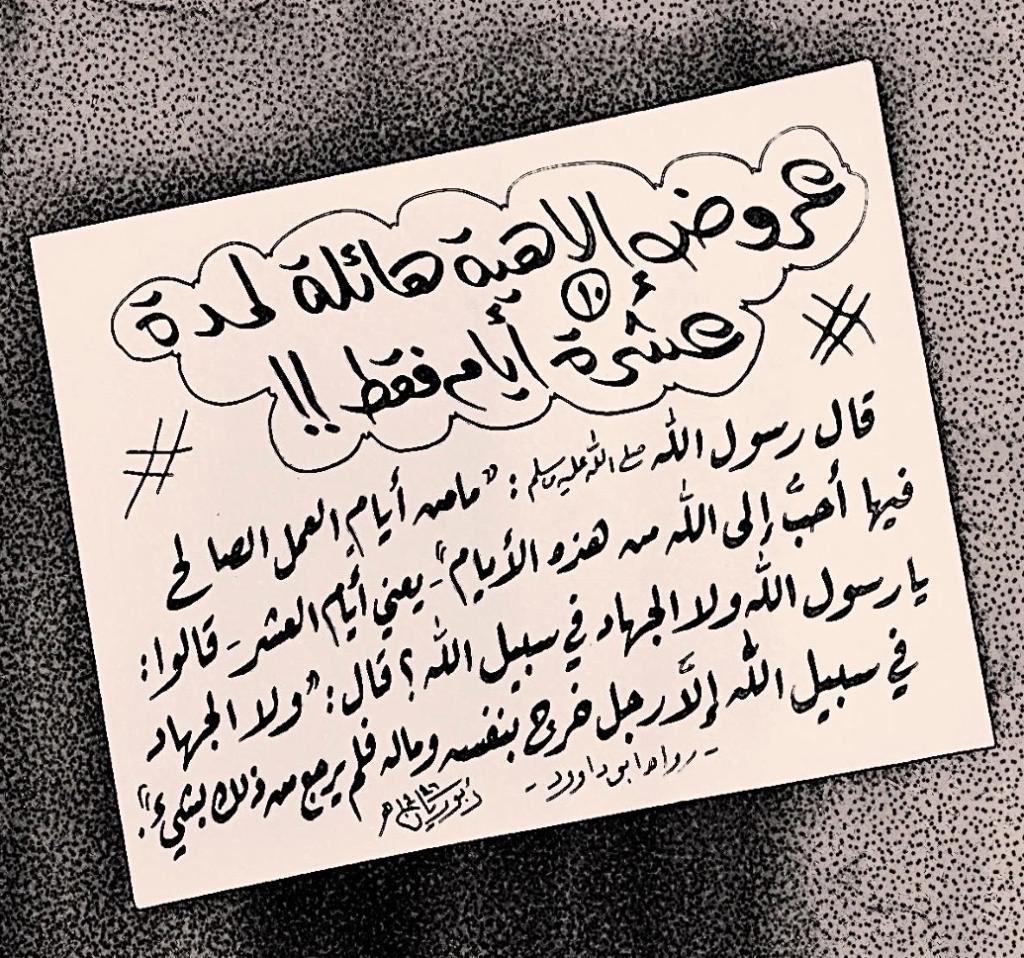 عروض إلاهية هائلة لمدة
عشرة ١٠ أيام فقط !!
#
#
قال رسول الله صلى الله عليه وسلم : "مامن أيامٍ العمل الصالح
فيها أحبُّ إلى الله من هذه الأيام" - يعني أيام العشر - قالوا :
يا رسول الله ولا الجهاد في سبيل الله ؟ قال : "ولا الجهاد
في سبيل الله إلَّا رجل خرج بنفسه وماله فلم يرجع من ذلك بشيء".
- رواه ابو داوود -